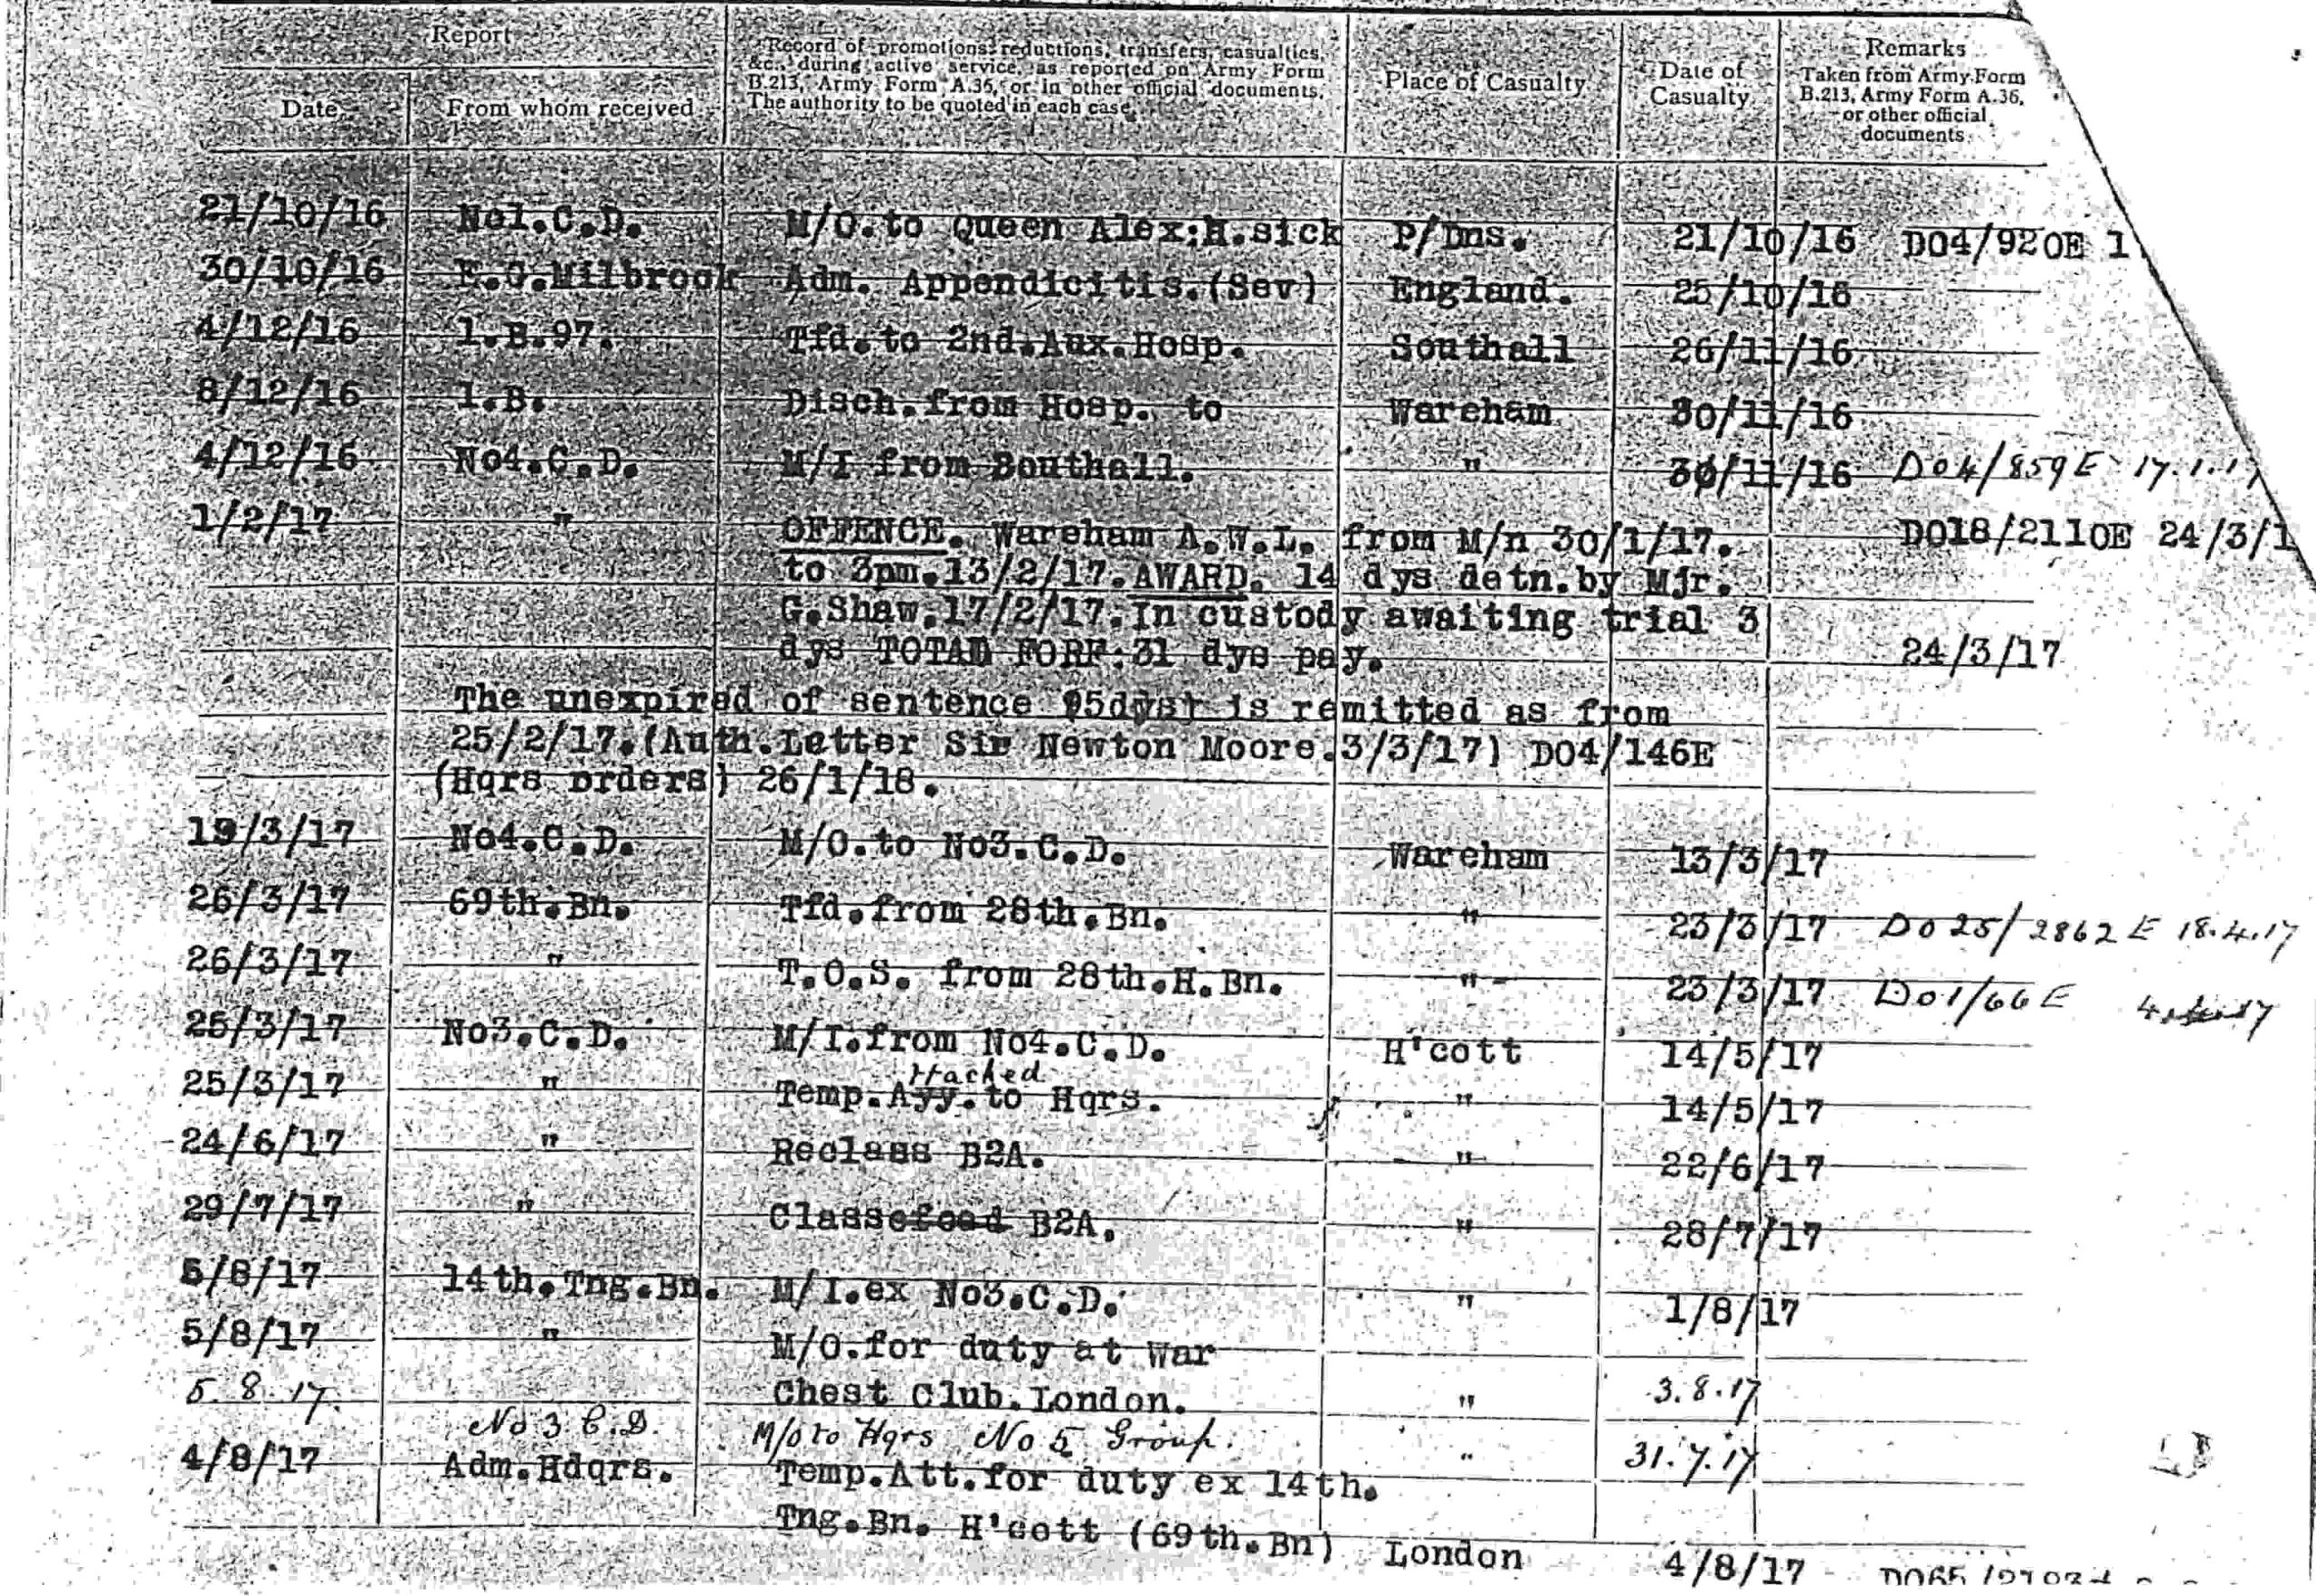 Report
Record of promotions, reductions, transfers, casualties,
&c., during active service, as reported on Army Form
B.213, Army Form A.36, or in other official documents.
The authority to be quoted in each case.
Place of Casualty
Date of
Casualty
Remarks
Taken from Army Form
B.213, Army Form A.36,
or other official
documents
Date
From whom received
21/10/16 No1.C.D. M/O.to Queen Alex:H.sick P/Dns. 21/10/16 DO4/920E 1
30/10/16 E.C.Milbrook Adm. Appendicitis.(Sev) England. 25/10/16
4/12/16 1.B.97. Tfd.to 2nd.Aux.Hosp. Southall 26/11/16
8/12/16 1.B. Disch.from Hosp. to Wareham 30/11/16
4/12/16 No4.C.D. M/I from Southall. " 30/11/16 DO4/859E 17.1.17
1/2/17 " OFFENCE. Wareham A.W.L. from M/n 30/1/17. DO18/2110E 24/3/1
to 3pm.13/2/17.AWARD. 14 dys detn.by Mjr.
G.Shaw.17/2/17.In custody awaiting trial 3
dys TOTAL FORF:31 dys pay. 24/3/17
The unexpired of sentence is remitted as from
25/2/17.(Auth.Letter Sir Newton Moore.3/3/17) DO4/146E
(Hqrs orders) 26/1/18.
19/3/17 No4.C.D. M/O.to No3.C.D. Wareham 13/3/17
26/3/17 69th.Bn. Tfd.from 28th.Bn. " 23/3/17 DO 25/2862 E 18.4.17
26/3/17 " T.O.S. from 28th.H.Bn. " 23/3/17 DO1/66 E
25/3/17 No3.C.D. M/I.from No4.C.D. H'cott 14/5/17
ttached
25/3/17 " Temp.Ayy.to Hqrs. " 14/5/17
24/6/17 " Reclass B2A. " 22/6/17
29/7/17 " Classefeed B2A. " 28/7/17
5/8/17 14th.Tng.Bn. M/I.ex No3.C.D. " 1/8/17
5/8/17 " M/O.for duty at War
Chest Club.London. " 3.8.17
5.8.17. No 3 C.D. M/o to Hqrs No 5 Group. " 31.7.17
4/8/17 Adm.Hdqrs. Temp.Att.for duty ex 14th.
Tng.Bn. H'cott (69th.Bn) London 4/8/17